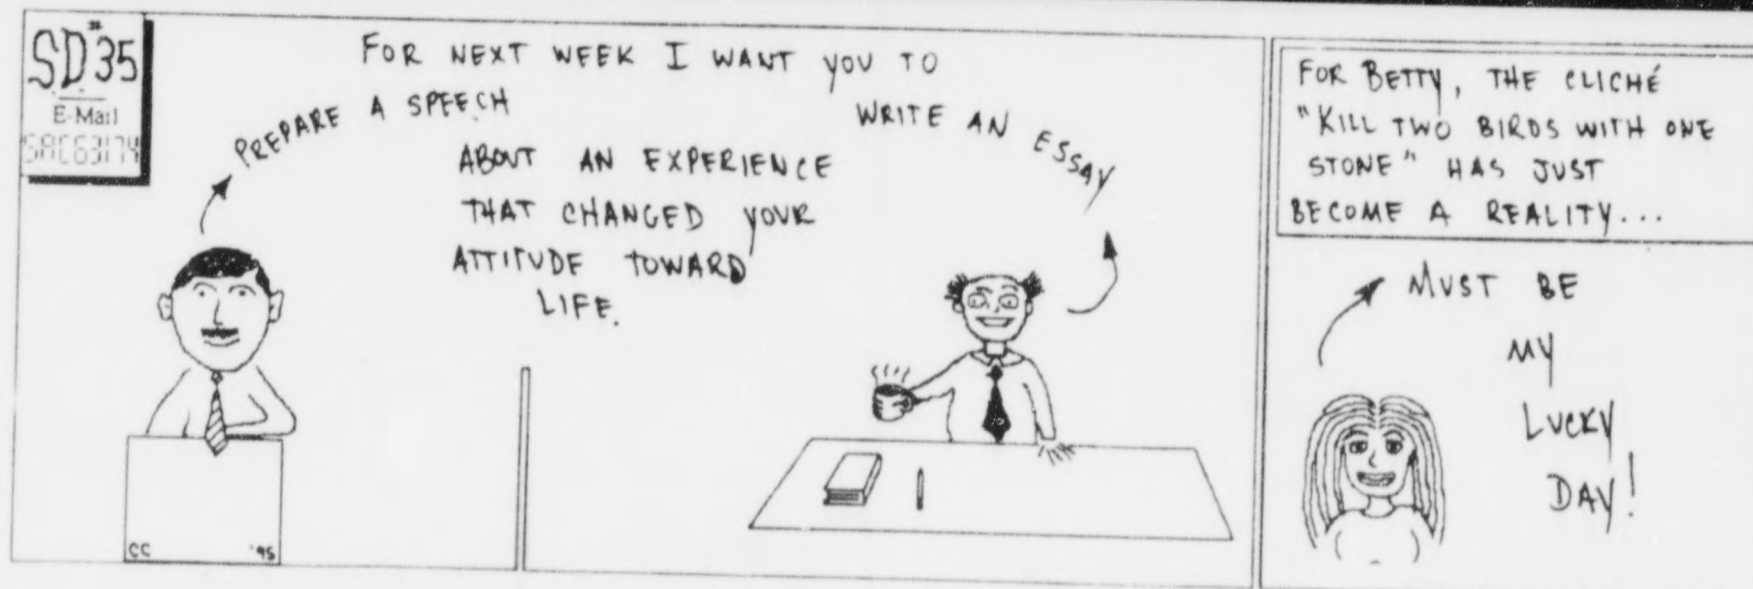 SD#35
E-Mail
SAC63174
FOR NEXT WEEK I WANT YOU TO
PREPARE A SPEECH
WRITE AN ESSAY
ABOUT AN EXPERIENCE
THAT CHANGED YOUR
ATTITUDE TOWARD
LIFE.
CC '95
FOR BETTY, THE CLICHÉ
"KILL TWO BIRDS WITH ONE
STONE" HAS JUST
BECOME A REALITY...
MUST BE
MY
LUCKY
DAY!